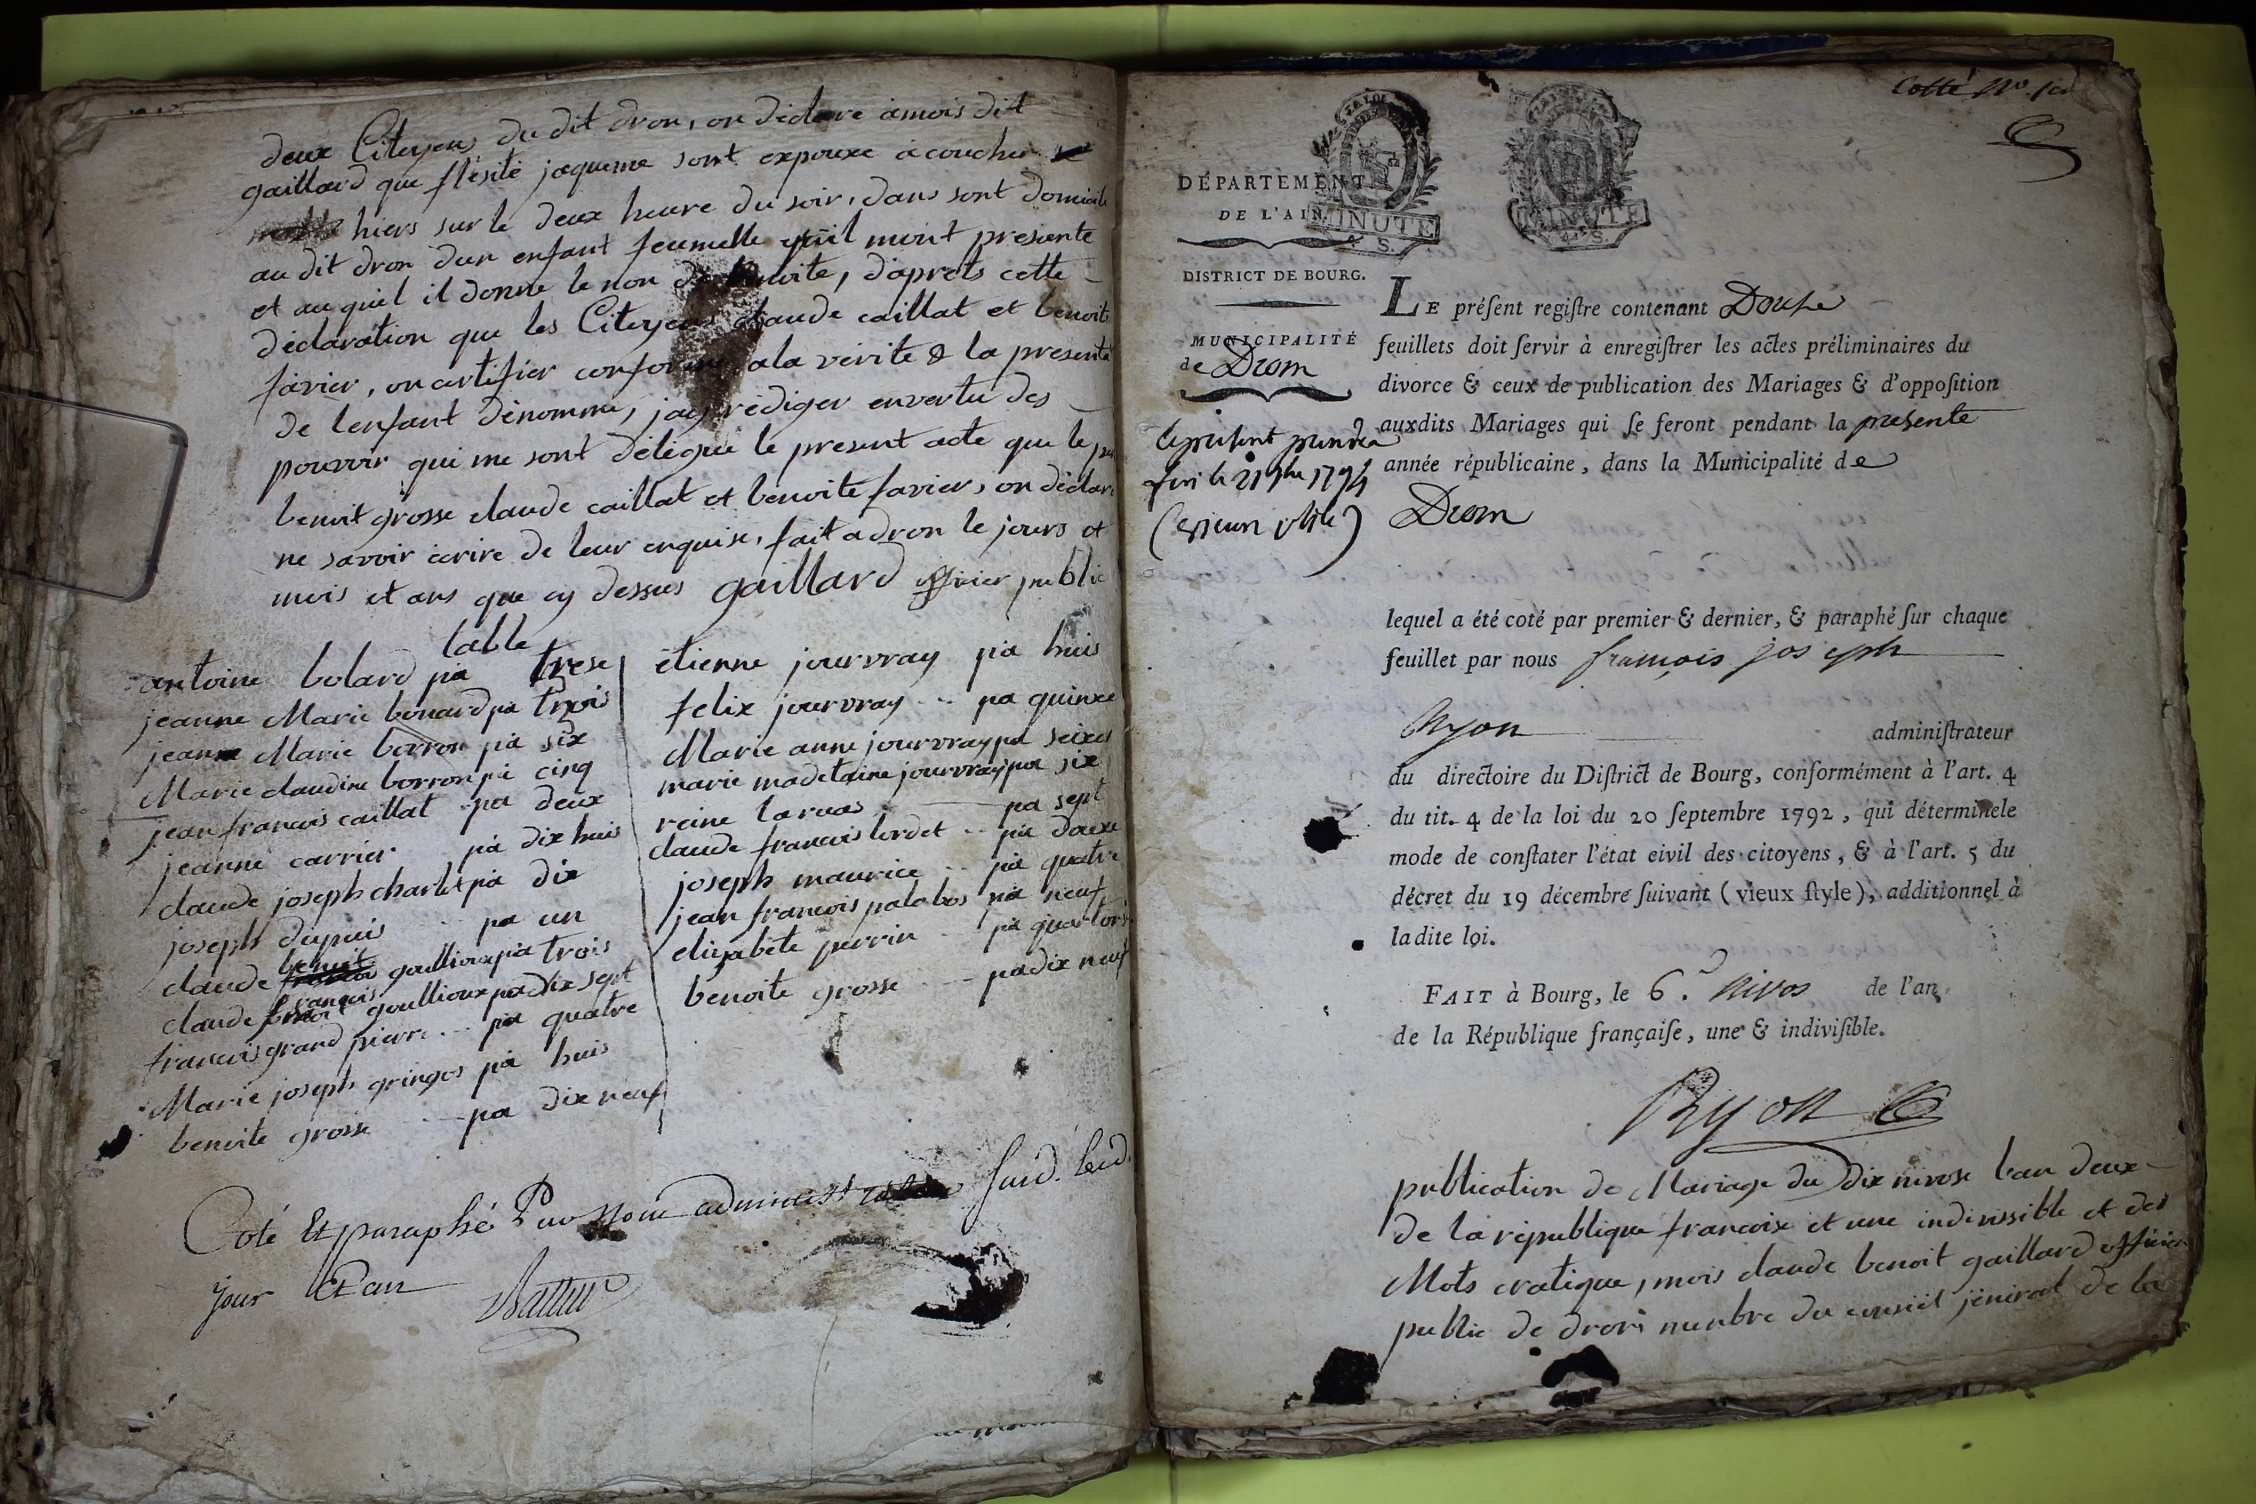 deux Citoyens du dit dron, on déclare a mois dit
gaillard que flésité jaqueme sont expouxe a coucher
hiers sur le deux heure du soir, dans sont domicile
au dit dron dun enfant feumelle quil mont presente
et au quel il donne le non de benoite, daprets cette
déclaration que les Citoyens claude caillat et benoite
favier, on certifier conforme a la vérite & la presente
de lenfant dénomme, jay rédiger envertu des
pouvoir qui me sont délégue le present acte que le
benoit grosse claude caillat et benoite favier, on déclare
ne savoir ecrire de leur enquise, fait a dron le jours et
mois et ans que cy dessus gaillard officier public
table
antoine bolard pa trese
jeanne Marie bonard pa trois
jeanne Marie borron pa six
Marie claudine borron pa cinq
jean francois caillat pa deux
jeanne carrier pa dix huis
claude joseph charlet pa dix
joseph dupuis pa un
claude benoit goullioux pa trois
claude francois goullioux pa dix sept
francois grand pierre pa quatre
Marie joseph gringos pa huis
benoite grosse pa dix neuf
étienne jourvray pa huis
felix jourvray pa quinxe
Marie anne jourvray pa seixe
marie madelaine jourvray pa six
reine laruas pa sept
claude francois lordet pa douxe
joseph maurice pa quatre
jean francois palabos pa neuf
elizabete perrin pa quatorse
benoite grosse pa dix neuf
Coté Et paraphé Par Nous administrateur Susd. lesd.
jour Et an
Cotté No. 1er
DÉPARTEMENT
DE L'AIN.
MINUTE
4 S.
MINUTE
4 S.
DISTRICT DE BOURG.
MUNICIPALITÉ
de Drom
21 9bre 1794
LE préſent regiſtre contenant Douze
feuillets doit ſervir à enregiſtrer les actes préliminaires du
divorce & ceux de publication des Mariages & d'oppoſition
auxdits Mariages qui ſe feront pendant la presente
année républicaine, dans la Municipalité de
Drom
lequel a été coté par premier & dernier, & paraphé ſur chaque
feuillet par nous françois joseph
Ryon administrateur
du directoire du Diſtrict de Bourg, conformément à l'art. 4
du tit. 4 de la loi du 20 ſeptembre 1792, qui déterminele
mode de conſtater l'état civil des citoyens, & à l'art. 5 du
décret du 19 décembre ſuivant (vieux ſtyle), additionnel à
ladite loi.
FAIT à Bourg, le 6. nivos de l'an
de la République françaiſe, une & indiviſible.
Ryon
publication de Mariage du dix nivose lan deux
de la république francoise et une indivissible et des
Mots cratique, mois claude benoit gaillard officier
public de dron menbre du conseil jénéral de la